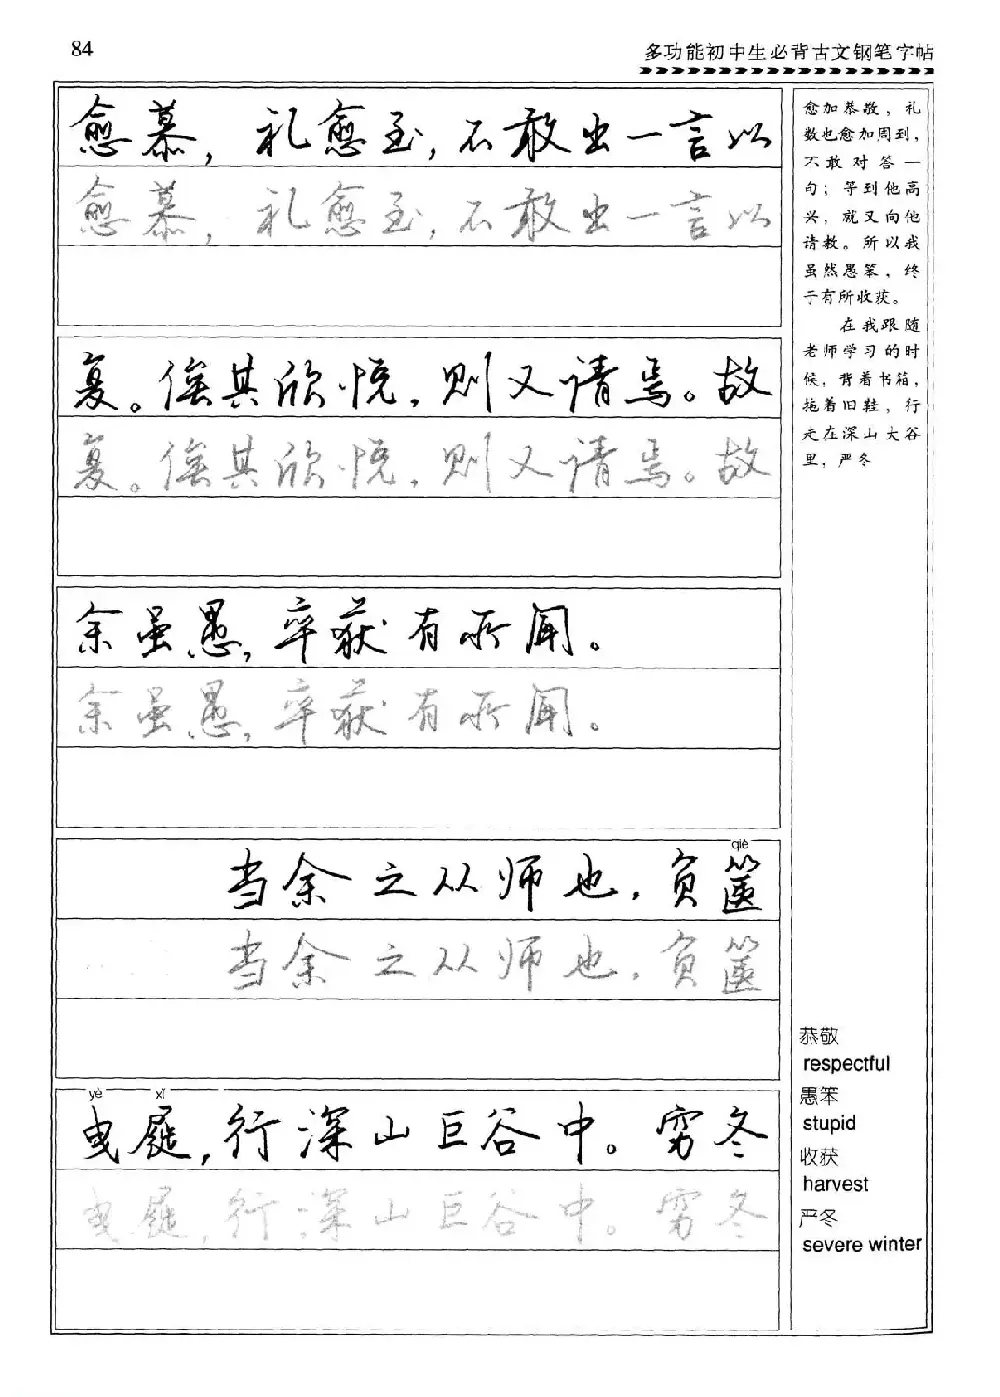 84
多功能初中生必背古文钢笔字帖
愈恭，礼愈至，不敢出一言以
愈恭，礼愈至，不敢出一言以
复。俟其欣悦，则又请焉。故
复。俟其欣悦，则又请焉。故
余虽愚，卒获有所闻。
余虽愚，卒获有所闻。
qiè
当余之从师也，负箧
当余之从师也，负箧
yè xǐ
曳屣，行深山巨谷中。穷冬
曳屣，行深山巨谷中。穷冬
愈加恭敬，礼
数也愈加周到，
不敢对答一
句；等到他高
兴，就又向他
请教。所以我
虽然愚笨，终
于有所收获。
在我跟随
老师学习的时
候，背着书箱，
拖着旧鞋，行
走在深山大谷
里，严冬
恭敬
respectful
愚笨
stupid
收获
harvest
严冬
severe winter